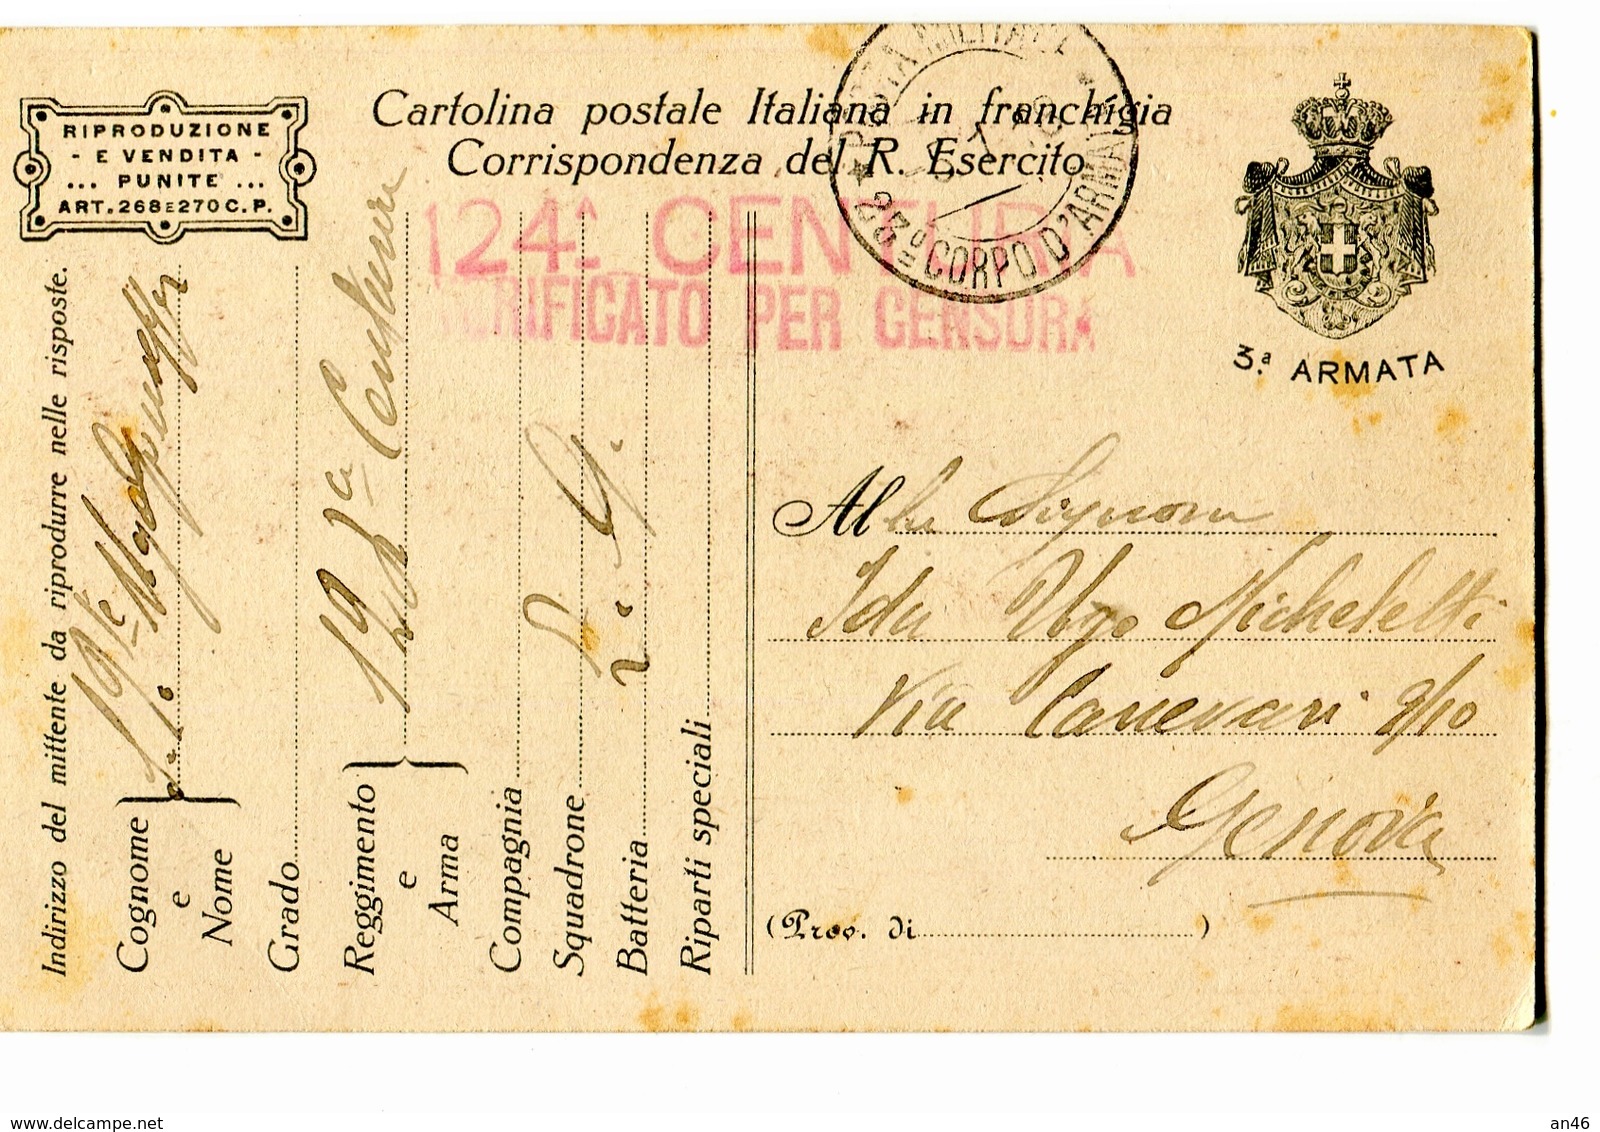 RIPRODUZIONE
- E VENDITA -
... PUNITE ...
ART. 268 E 270 C. P.
Cartolina postale Italiana in franchigia
Corrispondenza del R. Esercito
POSTA MILITARE
23º CORPO D'ARMATA
124ª CENTURIA
VERIFICATO PER CENSURA
3.ª ARMATA
Indirizzo del mittente da riprodurre nelle risposte.
Cognome
e
Nome
Grado
Reggimento
e
Arma
Centuria
Compagnia
Squadrone
Batteria
Z. G.
Riparti speciali
Alla Signora
Ida Ugo Micheletti
Via Canevari 9/10
Genova
(Prov. di )
delcampe.net
an46